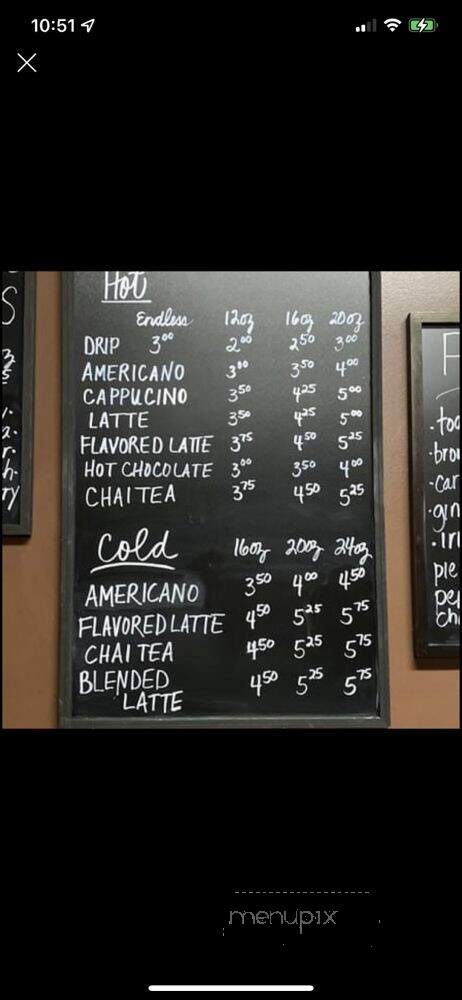 10:51
Hot
Endless 12oz 16oz 20oz
DRIP 3⁰⁰ 2⁰⁰ 2⁵⁰ 3⁰⁰
AMERICANO 3⁰⁰ 3⁵⁰ 4⁰⁰
CAPPUCINO 3⁵⁰ 4²⁵ 5⁰⁰
LATTE 3⁵⁰ 4²⁵ 5⁰⁰
FLAVORED LATTE 3⁷⁵ 4⁵⁰ 5²⁵
HOT CHOCOLATE 3⁰⁰ 3⁵⁰ 4⁰⁰
CHAI TEA 3⁷⁵ 4⁵⁰ 5²⁵
Cold 16oz 20oz 24oz
AMERICANO 3⁵⁰ 4⁰⁰ 4⁵⁰
FLAVORED LATTE 4⁵⁰ 5²⁵ 5⁷⁵
CHAI TEA 4⁵⁰ 5²⁵ 5⁷⁵
BLENDED 4⁵⁰ 5²⁵ 5⁷⁵
LATTE
menupix